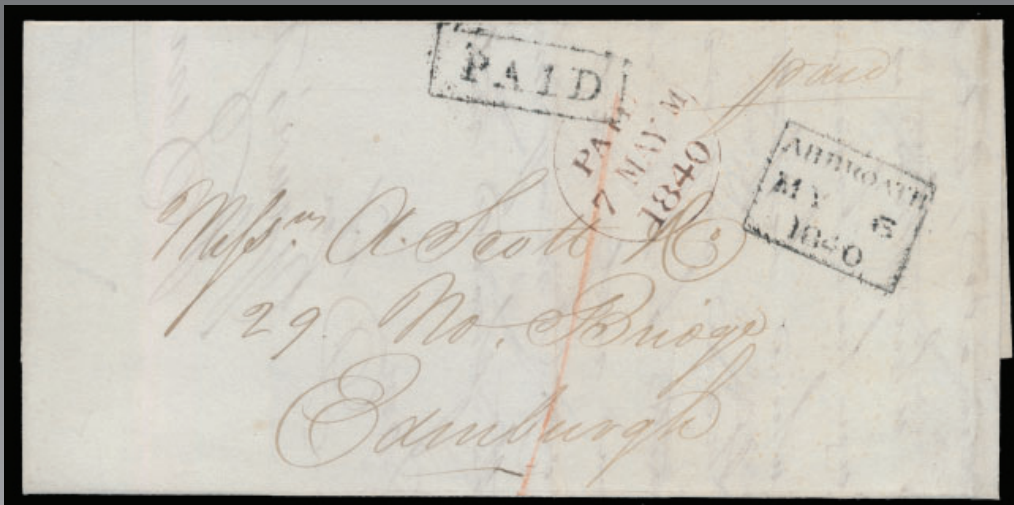 PAID
paid
PAID
7 MAY M
1840
ARBROATH
MY 6
1840
Messrs A. Scott & Co
29. No. Bridge
Edinburgh